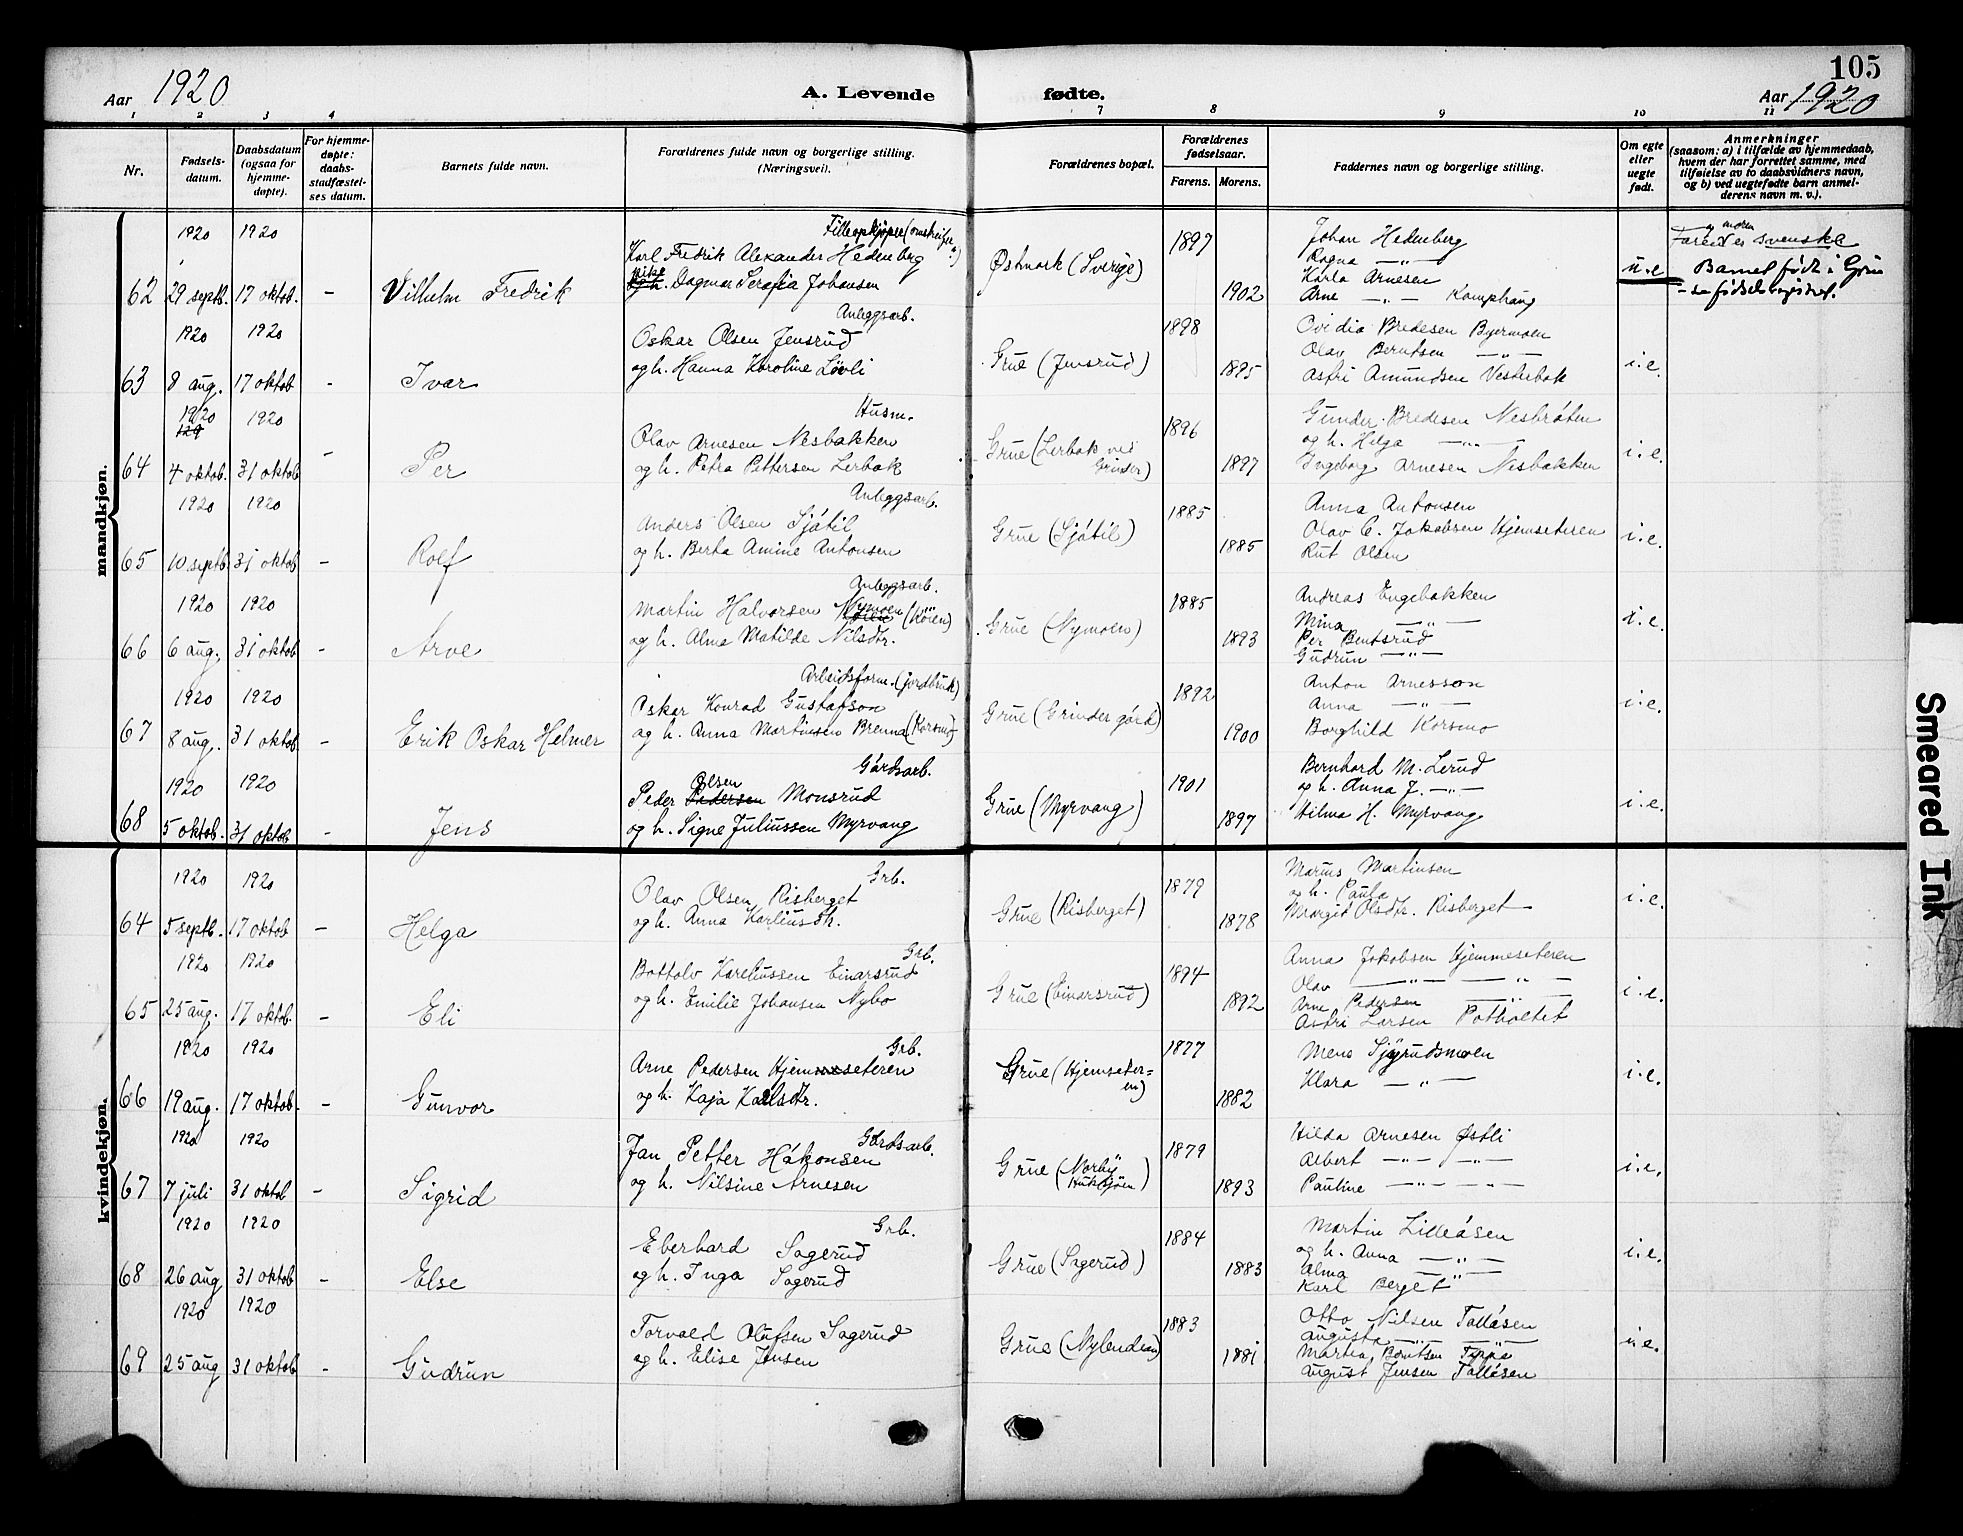 105
Aar 1920
A. Levende fødte.
Aar 1920
1 2 3 4 7 8 9 10 11
Nr.
Fødsels-datum.
Daabsdatum (ogsaa for hjemme-døpte).
For hjemme-døpte: daabs-stadfæstel-ses datum.
Barnets fulde navn.
Forældrenes fulde navn og borgerlige stilling. (Næringsvei).
Forældrenes bopæl.
Forældrenes fødselsaar.
Farens. Morens.
Faddernes navn og borgerlige stilling.
Om egte eller uegte født.
Anmerkninger
(saasom: a) i tilfælde av hjemmedaab,
hvem der har forrettet samme, med
tilføielse av to daabsvidners navn,
og b) ved uegtefødte barn anmel-
derens navn m. v.).
mandkjøn.
1920 1920
62 29 septb. 17 oktob. -
Vilhelm Fredrik
Filleopkjøper (omstreifer)
Karl Fredrik Alexander Hedenberg
pike Dagmar Serafia Johansen
Østmark (Sverige)
1897
1902
Johan Hedenberg
Ragna —"—
Karla Arnesen
Arne —"— Kamphaug
u.e
og moren
Faren er svenske
Barnet født i Grue
- se fødselsregistret.
1920 1920
63 8 aug. 17 oktob -
Ivar
Anleggsarb.
Oskar Olsen Jensrud
og h. Hanna Karoline Løvli
Grue (Jensrud)
1898
1895
Ovidia Bredesen Byermoen
Olav Berntsen —"—
Astri Amundsen Vesterbak
i.e.
1920 1920
64 4 oktob. 31 oktob -
Per
Husm.
Olav Arnesen Nesbakken
og h. Petra Pettersen Lerbak
Grue (Lerbak ved
Grinder)
1896
1897
Gunder Bredesen Nesbråten
og h. Helga —"—
Ingeborg Arnesen Nesbakken
i.e.
1920 1920
65 10 septb. 31 oktob -
Rolf
Anleggsarb.
Anders Olsen Sjåtil
og h. Berta Amine Antonsen
Grue (Sjåtil)
1885
1885
Anna Antonsen
Olav C. Jakobsen Hjemseteren
Rut Olsen
i.e.
1920 1920
66 6 aug. 31 oktob -
Arve
Anleggsarb.
Martin Halvorsen Nymoen (Köien)
og h. Alma Matilde Nilsdtr.
Grue (Nymoen)
1885
1893
Andreas Engebakken
Mina —"—
Per Bentsrud
Gudrun —"—
i.e.
1920 1920
67 8 aug. 31 oktob. -
Erik Oskar Helmer
Arbeidsform. (jordbruk)
Oskar Konrad Gustafson
og h. Anna Martinsen Brenna (Korsmo)
Grue (Grinder gård)
1892
1900
Anton Arnesson
Anna —"—
Borghild Korsmo
i.e.
1920 1920
68 5 oktob. 31 oktob. -
Jens
Gårdsarb.
Olsen
Peder Pedersen Monsrud
og h. Signe Juliussen Myrvang
Grue (Myrvang)
1901
1897
Bernhard M. Lerud
og h. Anna J. —"—
Hilma H. Myrvang
i.e.
kvindekjøn.
1920 1920
64 5 septb. 17 oktob -
Helga
Grb.
Olav Olsen Risberget
og h. Anna Karliusdtr.
Grue (Risberget)
1879
1878
Marius Martinsen
og h. Paula
Margit Olsdtr. Risberget
i.e.
1920 1920
65 25 aug. 17 oktob. -
Eli
Grb.
Bottolv Kareliussen Einarsrud
og h. Emilie Johansen Nybo
Grue (Einarsrud)
1894
1892
Anna Jakobsen Hjemmeseteren
Olav —"— —"—
Arne Pedersen —"—
Astri Larsen Potholtet
i.e.
1920 1920
66 19 aug. 17 oktob. -
Gunvor
Grb.
Arne Pedersen Hjemmeseteren
og h. Kaja Karlsdtr.
Grue (Hjemseter=
en)
1877
1882
Mens Sjyrudsmoen
Klara —"—
i.e.
1920 1920
67 7 juli 31 oktob -
Sigrid
Gårdsarb.
Jan Petter Håkonsen
og h. Nilsine Arnesen
Grue (Norby
Hukusjöen)
1879
1893
Hilda Arnesen Østli
Albert —"— —"—
Pauline —"— —"—
i.e.
1920 1920
68 26 aug 31 oktob -
Else
Grb.
Eberhard Sagerud
og h. Inga Sagerud
Grue (Sagerud)
1884
1883
Martin Lilleåsen
og h. Anna —"—
Alma —"—
Karl Berget
i.e.
1920 1920
69 25 aug 31 oktob -
Gudrun
Torvald Olufsen Sagerud
og h. Elise Jensen
Grue (Nylendean)
1883
1881
Otto Nilsen Tallåsen
Augusta —"— —"—
Martia Berntsen Teppa
August Jensen Tallåsen
u.e.
Smeared Ink